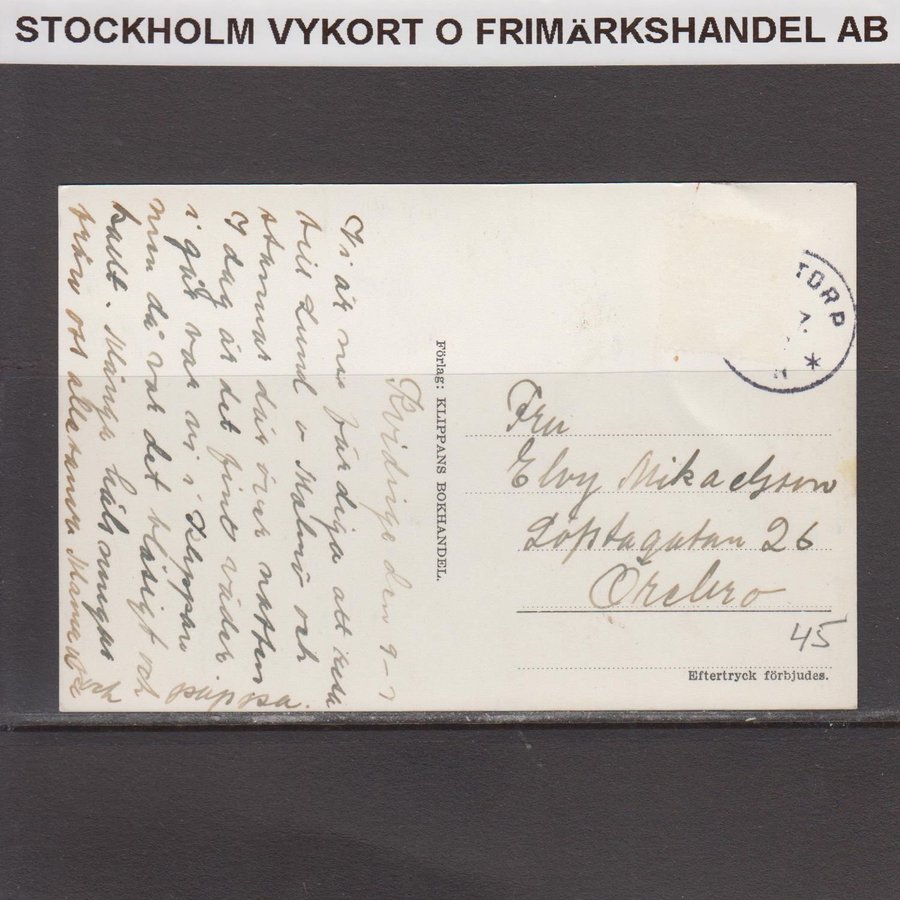 STOCKHOLM VYKORT O FRIMäRKSHANDEL AB
Kvidinge den 9-7
Vi är nu färdiga att resa
till Lund o Malmö och
stannar där över natten
I dag är det fint väder
i går var vi i Klippan
men då var det blåsigt och
kallt. Många hälsningar
från oss alla Mamma och
pappa.
Förlag: KLIPPANS BOKHANDEL.
TORP
Fru
Elvy Mikaelsson
Löptagatan 26
Örebro
45
Eftertryck förbjudes.